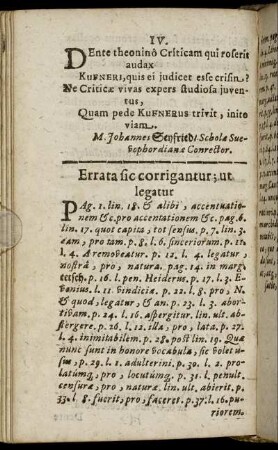 IV.
DEnte theoninò Criticam qui roserit
audax
KUFNERI, quis ei judicet esse crisin?
Ne Criticæ vivas expers studiosa juven-
tus,
Quam pede KUFNERUS trivit, inito
viam.
M. Johannes Seyfried/ Scholæ Sue-
phordianæ Conrector.
Errata sic corrigantur, ut
legatur
PAg. 1. lin. 18. & alibi, accentuatio-
nem &c. pro accentationem &c. pag. 6.
lin. 17. quot capita, tot sensus, p. 7. lin. 3.
eam, pro tam. p. 8. l. 6. sinceriorum. p. 11.
l. 4. Aremoveatur. p. 12. l. 4. legatur,
nostrâ, pro, natura. pag. 14. in marg.
p. 16. l. pen. Heidenr. p. 17. l. 3. E-
banius. l. 11. vindicia. p. 22. l. 8. pro, N,
& quod, legatur, & an. p. 23. l. 3. abor-
tivam. p. 24. l. 16. aspergitur. lin. ult. ab-
stergere. p. 26. l. 12. illa, pro, lata. p. 27.
l. 4. inimitabilem. p. 28. post lin. 19. Quæ
nunc sunt in honore vocabula, sic volet u-
sus, p. 29. l. 1. adulterini. p. 30. l. 2. pro-
latúmq, pro, locutúmq. p. 31. l. penult.
censuræ, pro, naturæ. lin. ult. abierit. p.
33. l. 8. fuerit, pro, faceret. p. 37. l. 16. pu-
riorem.